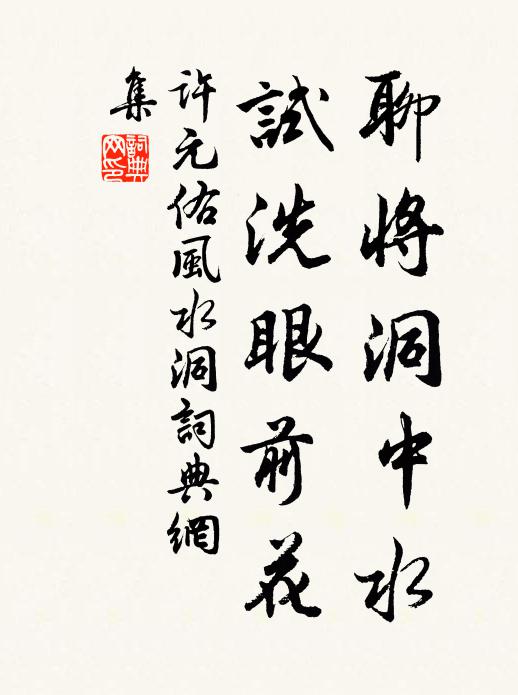 聊將洞中水
試洗眼前花
許元佑風水洞詞典網
集
詞典網印